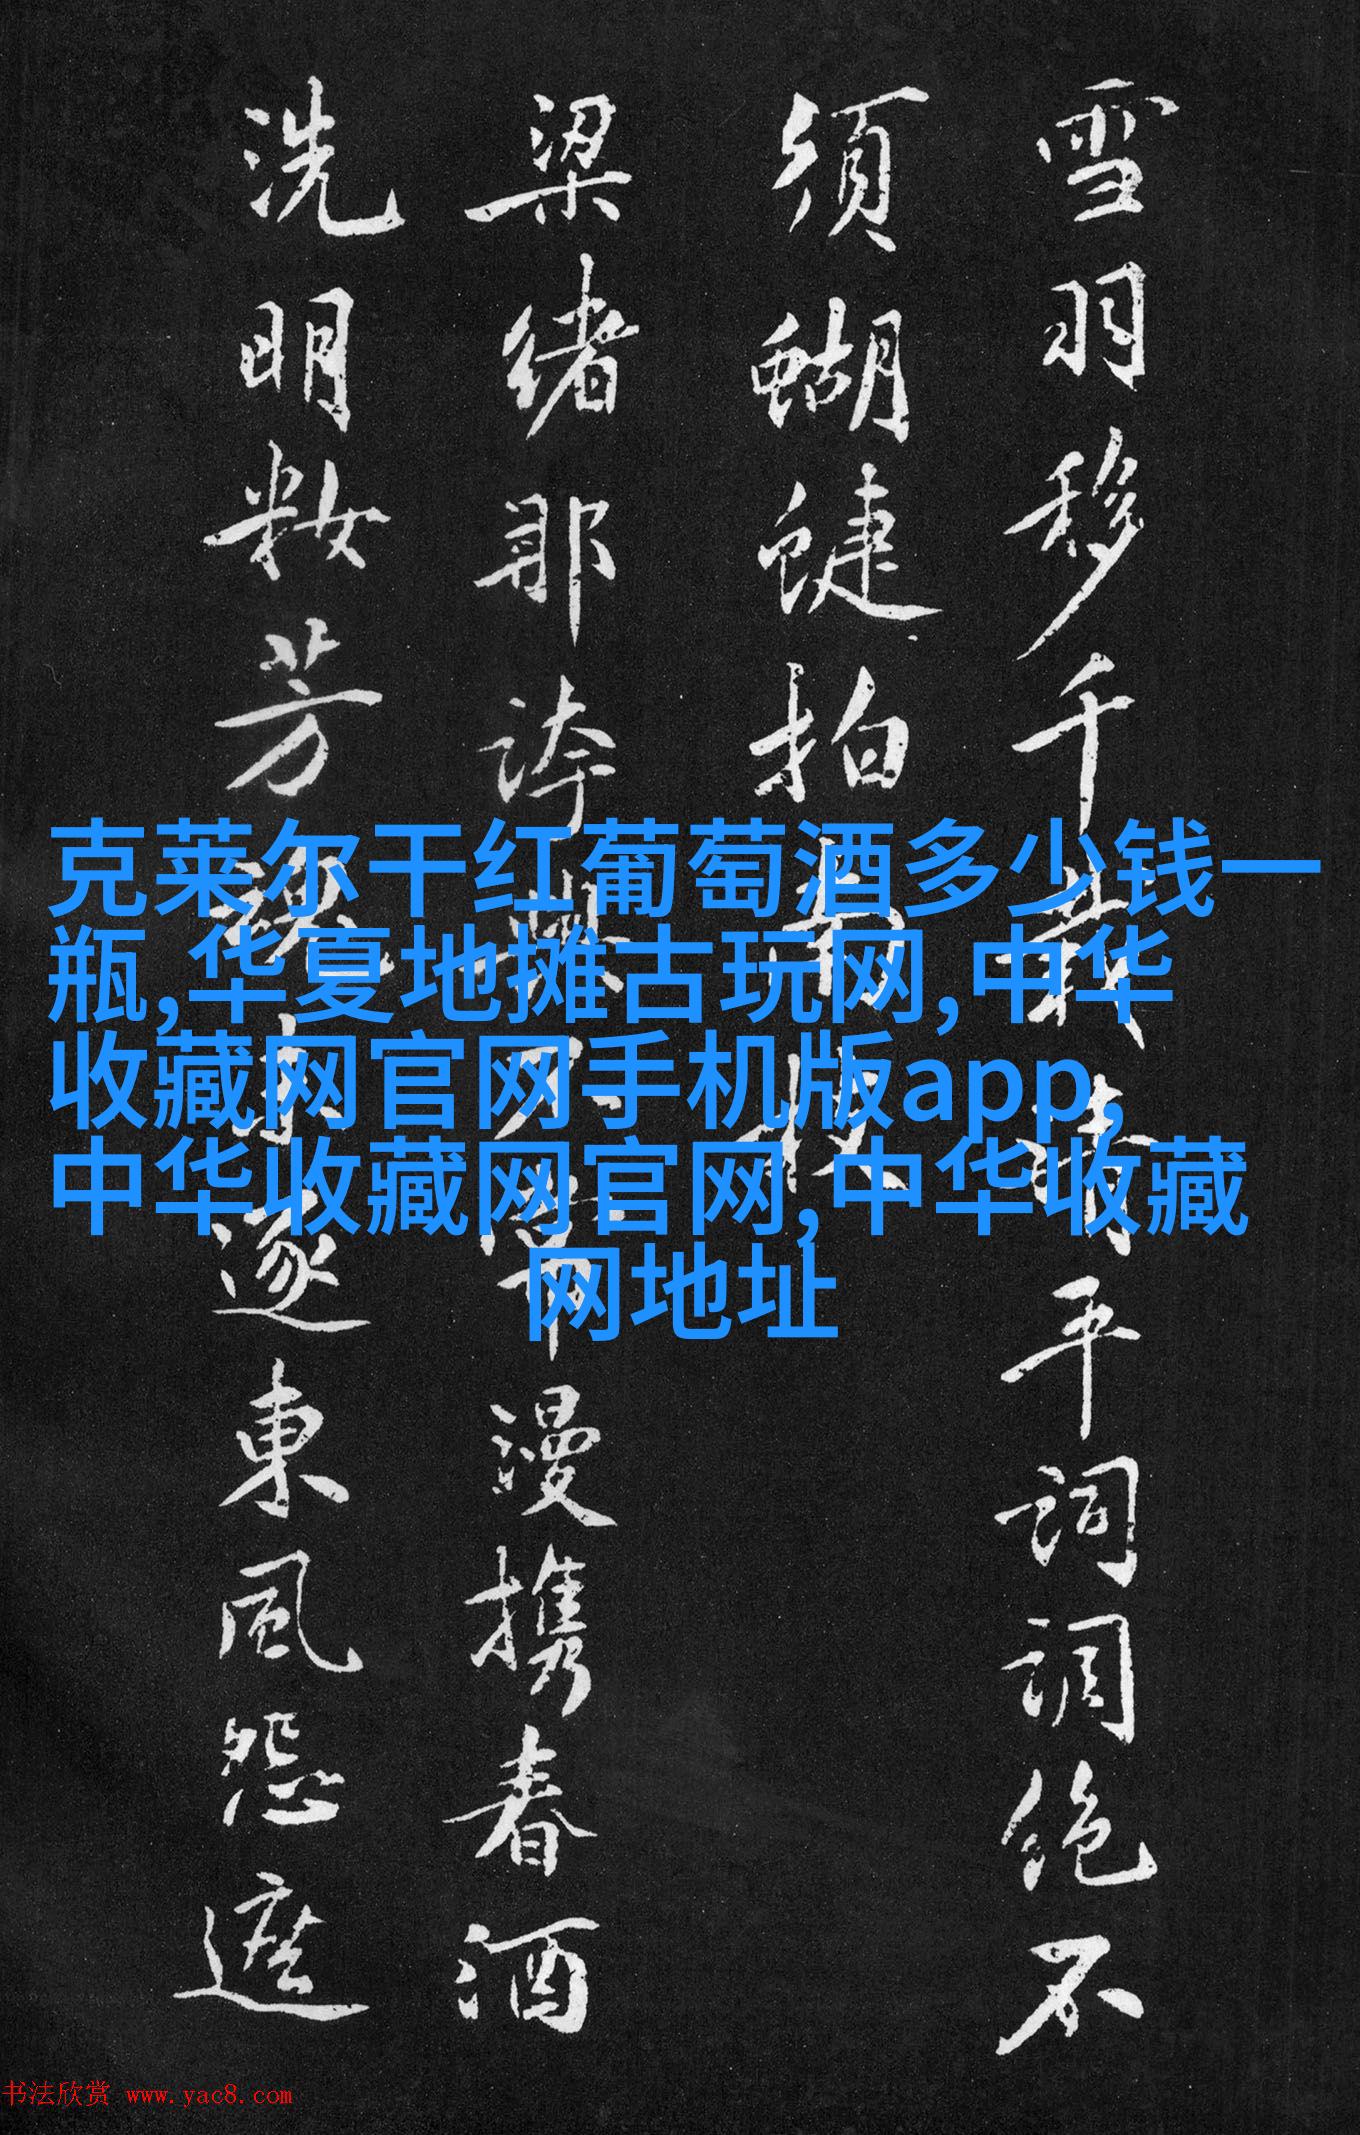 雪羽移千載清平詞調絶不
須蝴蜨拍
梁緒那誇
漫携春酒
洗明粧芳
逐東風怨遮
克莱尔干红葡萄酒多少钱一
瓶,华夏地摊古玩网,中华
收藏网官网手机版app,
中华收藏网官网,中华收藏
网地址
书法欣赏 www.yac8.com